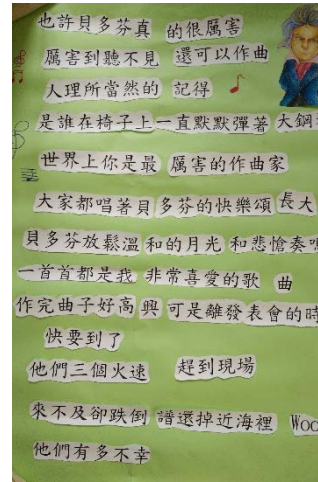 也許貝多芬真 的很厲害
厲害到聽不見 還可以作曲
人理所當然的 記得
是誰在椅子上一直默默彈著 大鋼
世界上你是最 厲害的作曲家
大家都唱著貝 多芬的快樂頌 長大
貝多芬放鬆溫 和的月光 和悲愴奏
一首首都是我 非常喜愛的歌 曲
作完曲子好高 興 可是離發表會的時
快要到了
他們三個火速 趕到現場
來不及卻跌倒 譜還掉近海裡 Woo
他們有多不幸